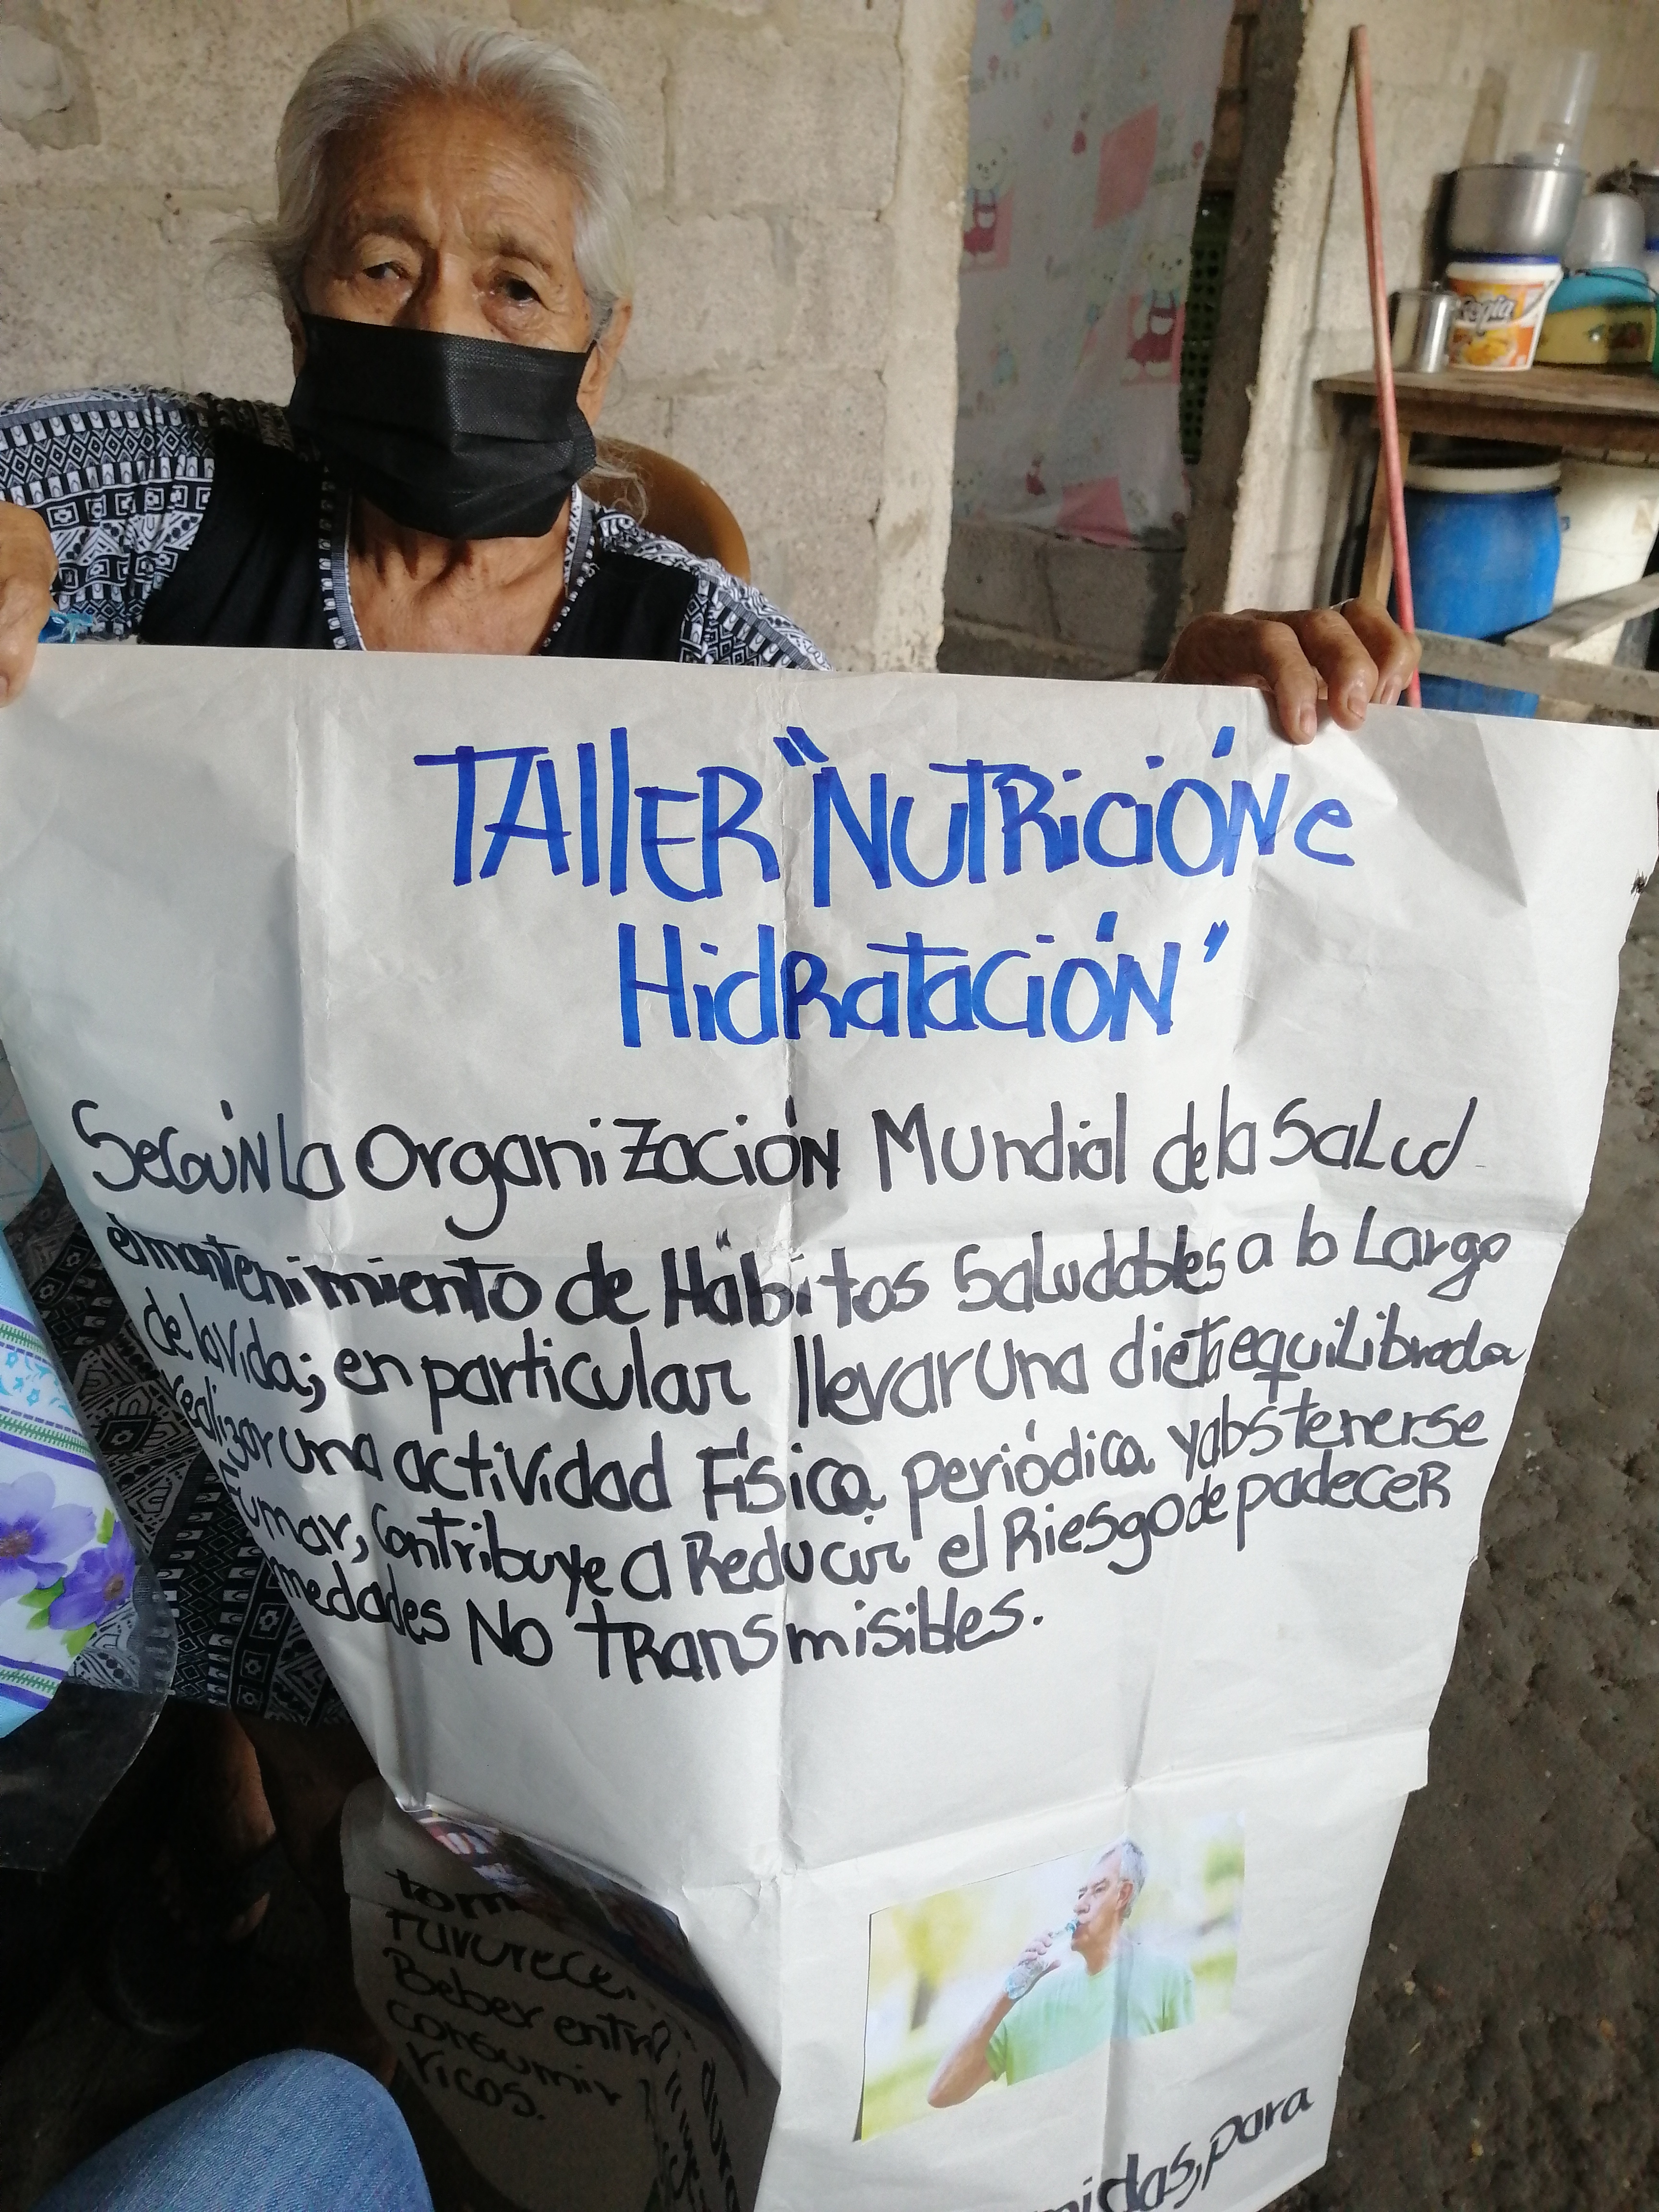 TAllER "NUTRiciÓN e
HidRataciÓN"
SegúN la OrganiZación Mundial de la SaLud
el mantenimiento de Hábitos Saludables a lo Largo
de la vida; en particular llevar una dieta equilibrada
realizar una actividad Física periódica y abstenerse
Fumar, contribuye a Reducir el Riesgo de padeceR
medades No tRansmisibles.
tom
Favorece
Beber entr
consumir
ricos.
midas, para